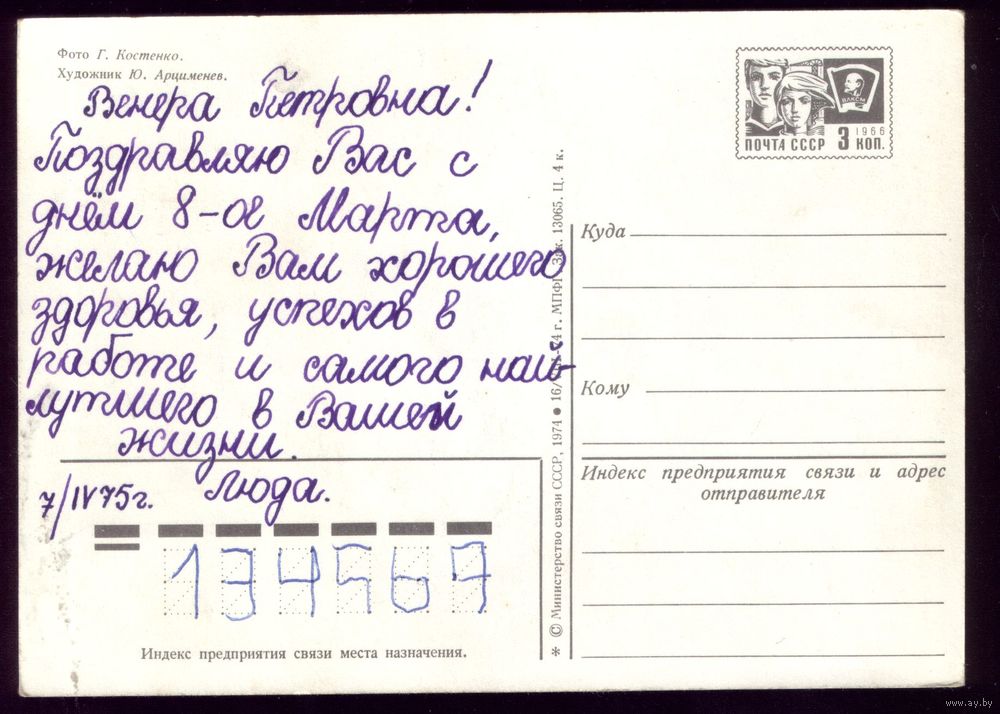 Фото Г. Костенко.
Художник Ю. Арцименев.
Венера Петровна!
Поздравляю Вас с
днём 8-ое Марта,
желаю Вам хорошего
здоровья, успехов в
работе и самого наи-
лутшего в Вашей
жизни.
7/IV 75г. Люда.
134567
Индекс предприятия связи места назначения.
* © Министерство связи СССР, 1974 ● 16/ 74 г. МПФГ Зак. 13065. Ц. 4 к.
ВЛКСМ
1966
ПОЧТА СССР 3 КОП.
Куда
Кому
Индекс предприятия связи и адрес
отправителя
www.ay.by